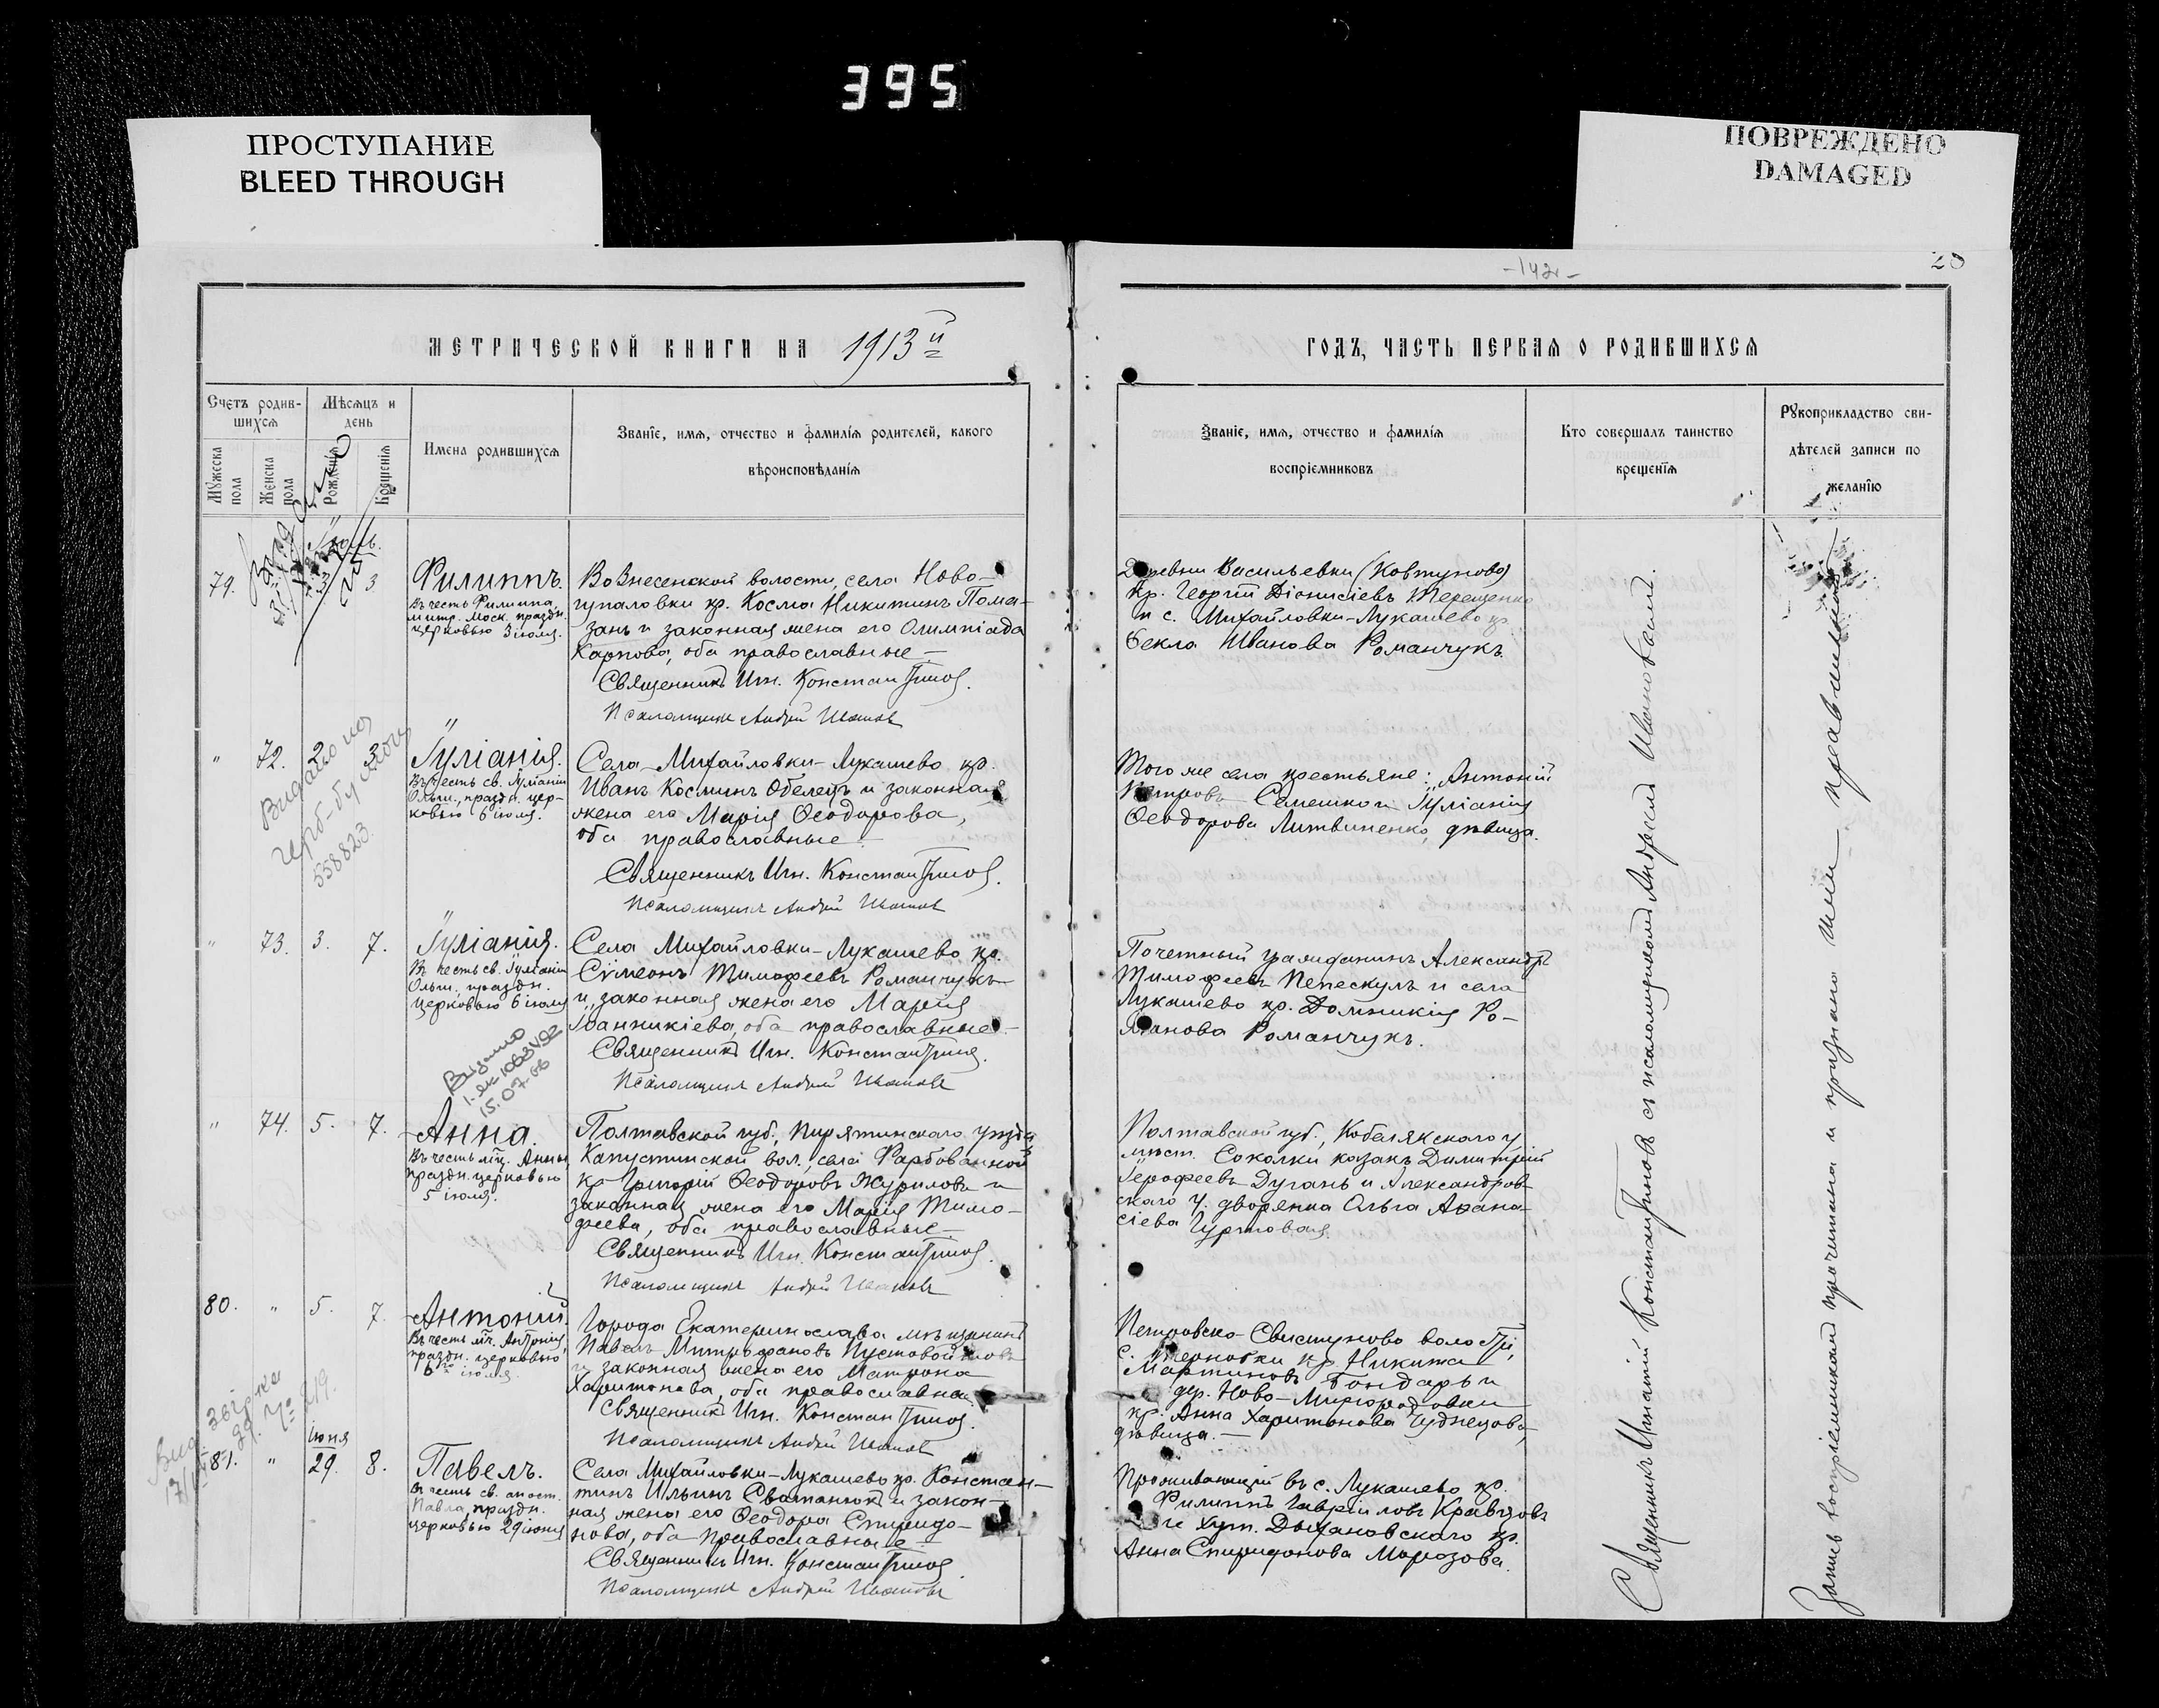 395
ПРОСТУПАНИЕ
BLEED THROUGH
ПОВРЕЖДЕНО
DAMAGED
-142-
28
МЕТРИЧЕСКОЙ КНИГИ НА 1913й
Счетъ родив-
шихся
Мѣсяцъ и
день
Мужеска
пола
Женска
пола
Рожденія
Крещенія
Имена родившихся
Званіе, имя, отчество и фамилія родителей, какого
вѣроисповѣданія
79.
3
Филиппъ.
Въ честь Филиппа,
митр. Моск. праздн.
церковью 3 іюля.
Вознесенской волости, села Ново-
гупаловки кр. Косма Никитинъ Пома-
занъ и законная жена его Олимпіада
Карпова, оба православные —
Священникъ Игн. Константиновъ.
Псаломщикъ Андрей
" 72. 2 3
Іуліанія.
Въ честь св. Іуліаніи
Ольш., праздн. цер-
ковью 6 іюля.
Видано
558823
Села Михайловки-Лукашево кр.
Иванъ Косминъ Обелецъ и законная
жена его Марія Ѳеодорова,
оба православные —
Священникъ Игн. Константиновъ.
Псаломщикъ Андрей
" 73. 3. 7.
Іуліанія.
Въ честь св. Іуліаніи
Ольш. праздн.
церковью 6 іюля
Видано
15.07.
Села Михайловки-Лукашево кр.
Сѵмеонъ Тимофеевъ Романчукъ
и законная жена его Марія
Іоанникіева, оба православные —
Священникъ Игн. Константиновъ.
Псаломщикъ Андрей
" 74. 5. 7.
Анна.
Въ честь мц. Анны,
праздн. церковью
5 іюля.
Полтавской губ., Пирятинскаго уѣзда
Капустинской вол., села Фарбованной
кр. Григорій Ѳеодоровъ Журиловъ и
законная жена его Марія Тимо-
феева, оба православные —
Священникъ Игн. Константиновъ.
Псаломщикъ Андрей
80. " 5. 7.
Антоній.
Въ честь мч. Антонія,
праздн. церковью
6го іюля.
Города Екатеринослава мѣщанинъ
Павелъ Митрофановъ
и законная жена его Матрона
Харитонова, оба православная
Священникъ Игн. Константиновъ.
Псаломщикъ Андрей
Іюня
81. " 29. 8.
Павелъ.
Въ честь св. апост.
Павла, праздн.
церковью 29 іюня
Села Михайловки-Лукашево кр. Констан-
тинъ Ильинъ Сватанюкъ и закон-
ная жена его Ѳеодора Спиридо-
нова, оба православные —
Священникъ Игн. Константиновъ.
Псаломщикъ Андрей
ГОДЪ, ЧАСТЬ ПЕРВАЯ О РОДИВШИХСЯ
Званіе, имя, отчество и фамилія
воспріемниковъ
Кто совершалъ таинство
крещенія
Рукоприкладство сви-
дѣтелей записи по
желанію
Деревни Васильевки (Ковтуново)
кр. Георгій Діонисіевъ Терещенко
и с. Михайловки-Лукашево кр.
Ѳекла Иванова Романчукъ.
Того же села крестьяне: Антоній
Петровъ Семешко и Іуліанія
Ѳеодорова Литвиненко, дѣвица.
Почетный гражданинъ Александръ
Тимофеевъ Пепескулъ и села
Лукашево кр. Домникія Ро-
манова Романчукъ.
Полтавской губ., Кобелякскаго у
мѣст. Соколки казакъ Димитрій
Іерофеевъ Дуганъ и Александров-
скаго у. дворянка Ольга Аѳана-
сіева
Петровско-Свистуново волости,
с. Терновки кр. Никита
Мартиновъ Бондарь и
дер. Ново-Миргородовки
кр. Анна Харитонова
дѣвица. —
Проживающій въ с. Лукашево кр.
Филиппъ Гавріиловъ Кравцовъ
и хут. кр.
Анна Спиридонова Морозова.
Священникъ Игнатій Константиновъ съ псаломщикомъ Андреемъ Ивановскимъ.
Запись воспріемниками прочитана и признана ими правильной